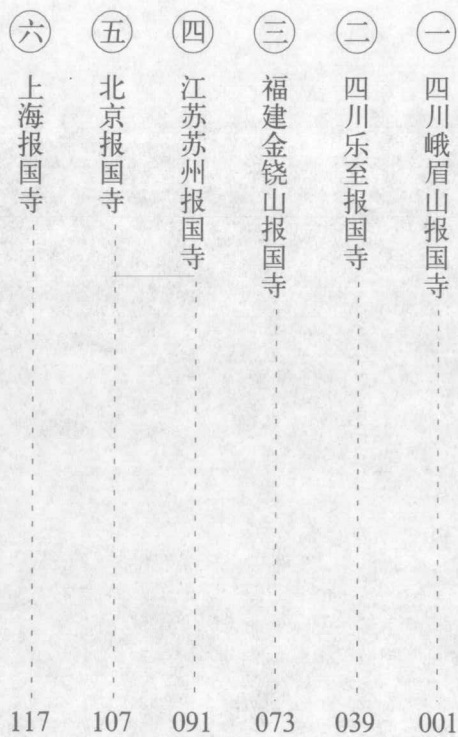 ㊀ 四川峨眉山报国寺 001
㊁ 四川乐至报国寺 039
㊂ 福建金铙山报国寺 073
㊃ 江苏苏州报国寺 091
㊄ 北京报国寺 107
㊅ 上海报国寺 117